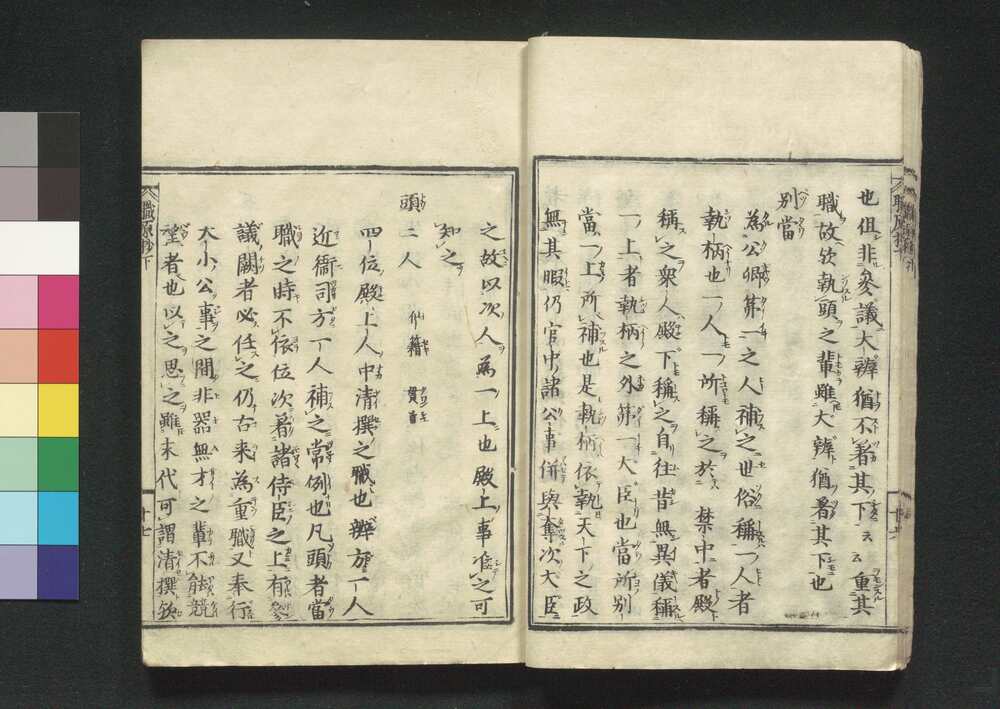 也但非参議大辨猶不著其下云云重其
職故歟執頭之輩雖大辨猶著其下也
別當
為公卿第一之人補之世俗稱一人者
執柄也一人一所稱之於禁中者殿
稱之衆人殿下稱之自往昔無異儀稱
一上者執柄之外第一大臣也當所別
當一上所補也是執柄依執天下之政
無其暇仍官中諸公事併與奪次大臣
之故以次人為一上也殿上事准之可
知之
頭二人 仙籍 貫首
四位殿上人中清撰之職也辨方一人
近衛司方一人補之常例也凡頭者當
職之時不依位次著諸侍臣之上有
議闕者必任之仍古来為重職又奉行
大小公事之間非器無才之輩不能競
望者也以之思之雖末代可謂清撰歟
職原抄下
十七